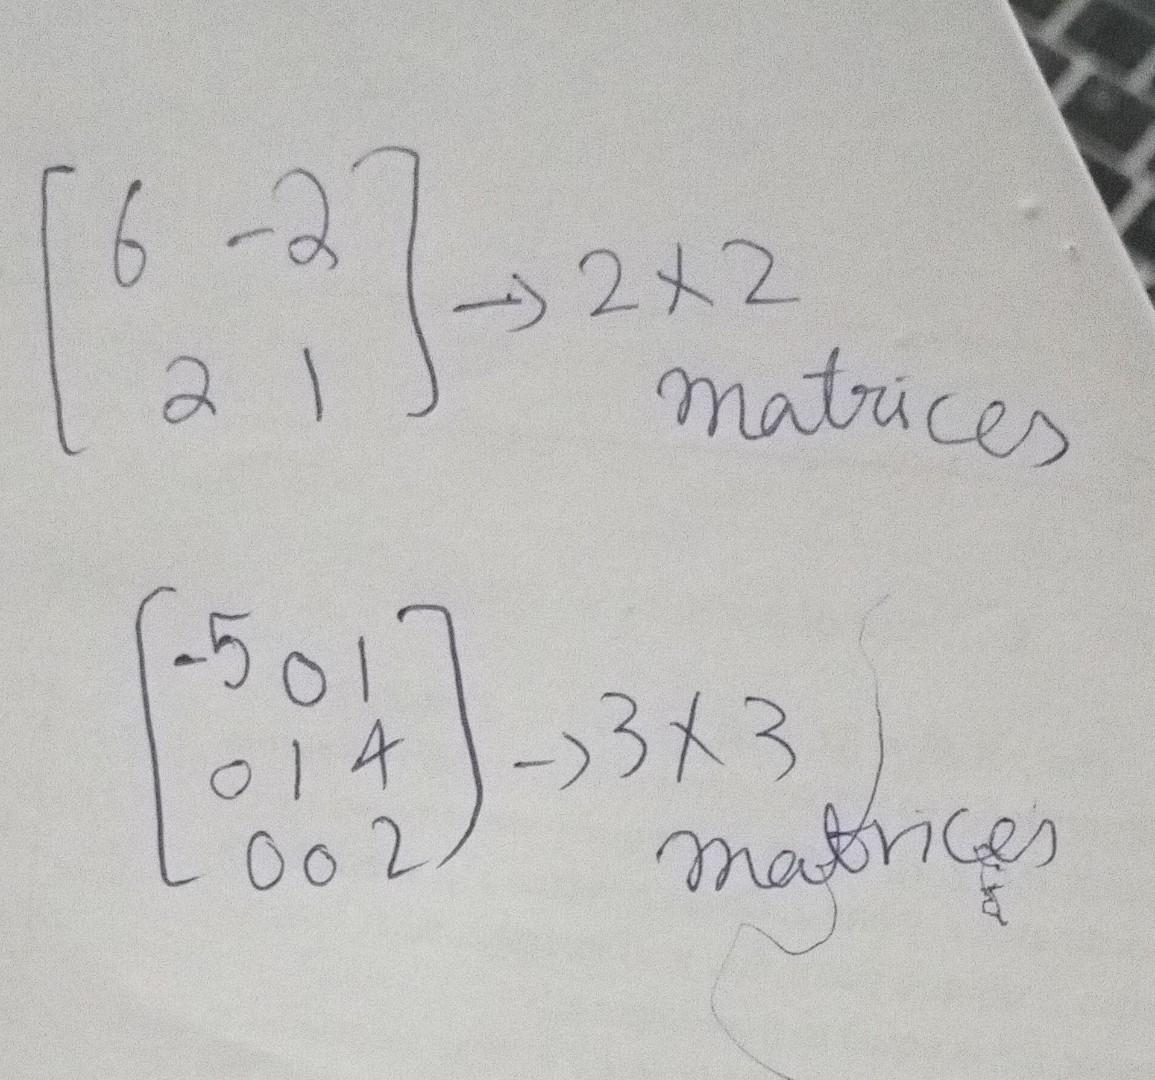 6 -2
2 1
→ 2×2
matrices
-5 0 1
0 1 4
0 0 2
→ 3×3
matrices